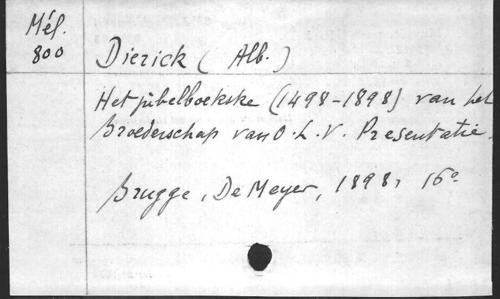 Mél.
800
Dierick (Alb.)
Het jubelboekske (1498-1898) van het
Broederschap van O.L.V. Presentatie.
Brugge, De Meyer, 1898, 16°